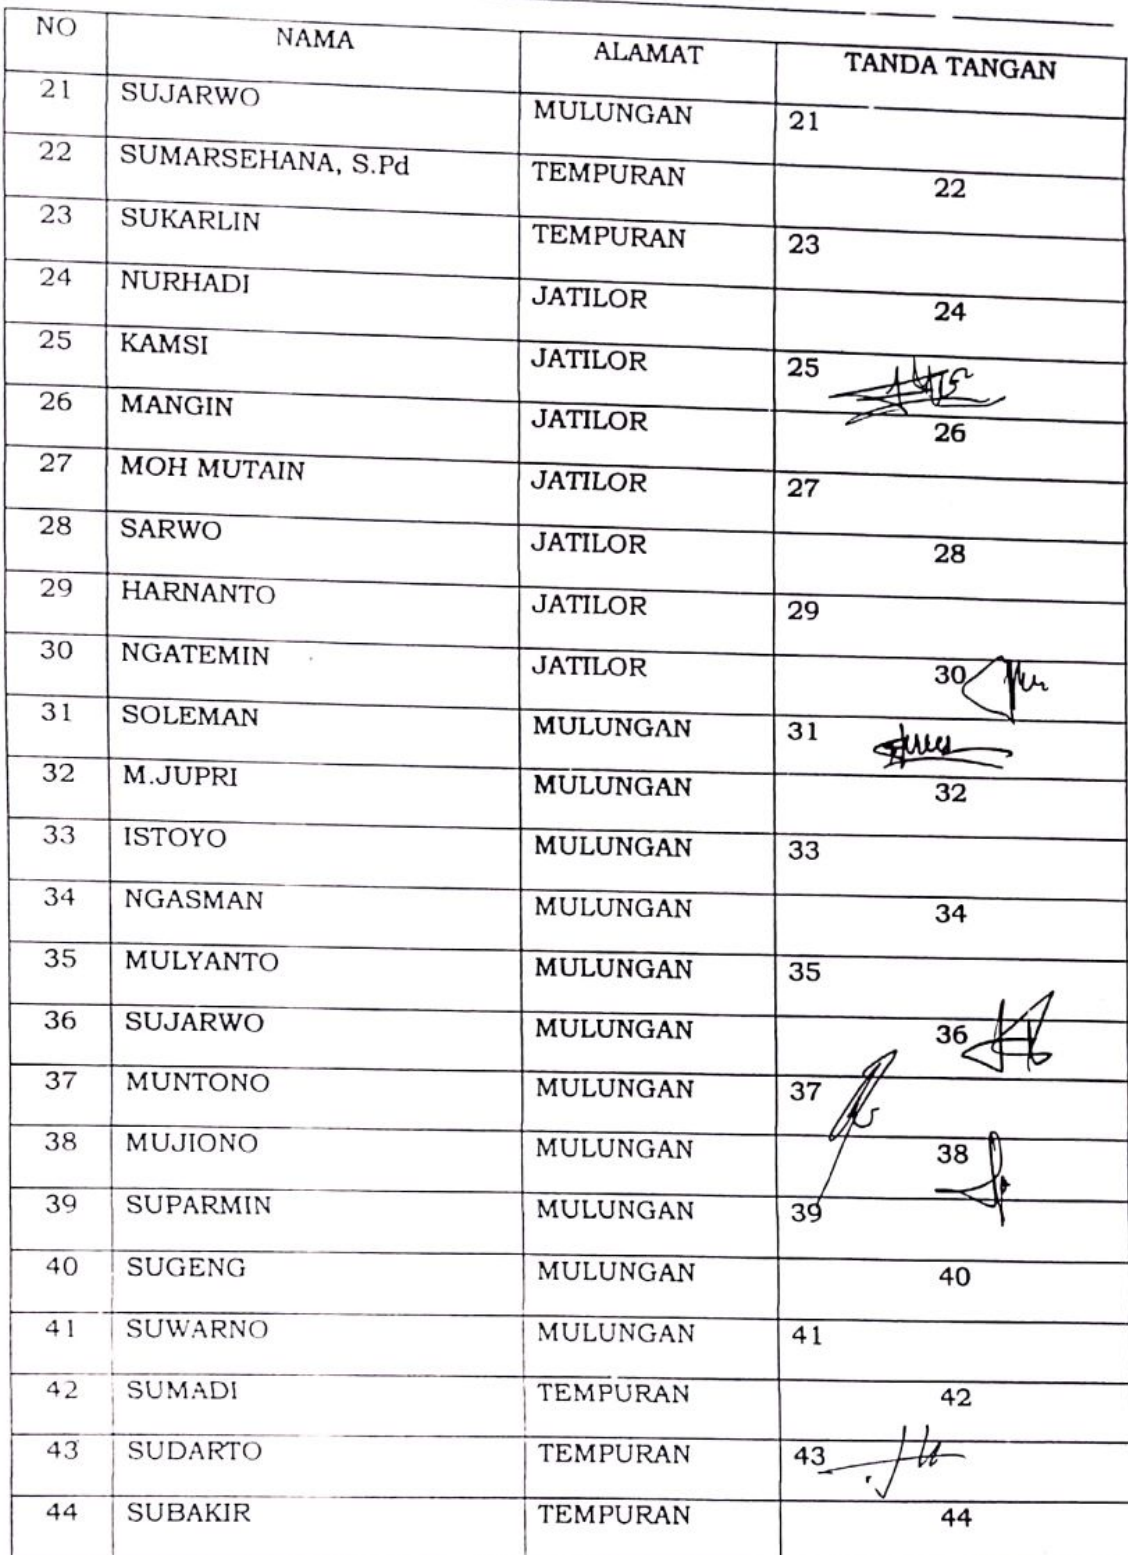 NO NAMA ALAMAT TANDA TANGAN
21 SUJARWO MULUNGAN 21
22 SUMARSEHANA, S.Pd TEMPURAN 22
23 SUKARLIN TEMPURAN 23
24 NURHADI JATILOR 24
25 KAMSI JATILOR 25
26 MANGIN JATILOR 26
27 MOH MUTAIN JATILOR 27
28 SARWO JATILOR 28
29 HARNANTO JATILOR 29
30 NGATEMIN JATILOR 30
31 SOLEMAN MULUNGAN 31
32 M.JUPRI MULUNGAN 32
33 ISTOYO MULUNGAN 33
34 NGASMAN MULUNGAN 34
35 MULYANTO MULUNGAN 35
36 SUJARWO MULUNGAN 36
37 MUNTONO MULUNGAN 37
38 MUJIONO MULUNGAN 38
39 SUPARMIN MULUNGAN 39
40 SUGENG MULUNGAN 40
41 SUWARNO MULUNGAN 41
42 SUMADI TEMPURAN 42
43 SUDARTO TEMPURAN 43
44 SUBAKIR TEMPURAN 44